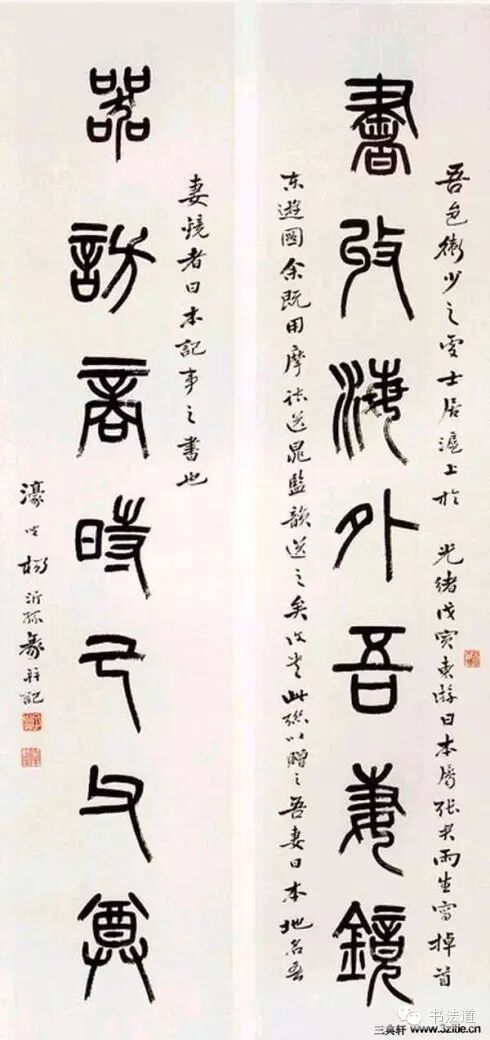 書攷海外吾妻鏡
吾邑衛少之雯士居滬上於 光緒戊寅東游日本屬張君雨生寫掉首
東遊圖余既用摩詰送晁監韻送之矣又書此聯以贈之吾妻日本地名吾
妻鏡者日本記事之書也
器訪商時己父尊
濠叟楊沂孫篆并記
书法道
三奥轩 www.3zitie.cn